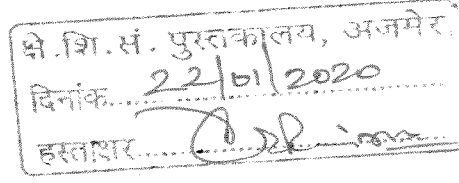 क्षे.शि.सं. पुस्तकालय, अजमेर
दिनांक..... 22/01/2020
हस्ताक्षर.....